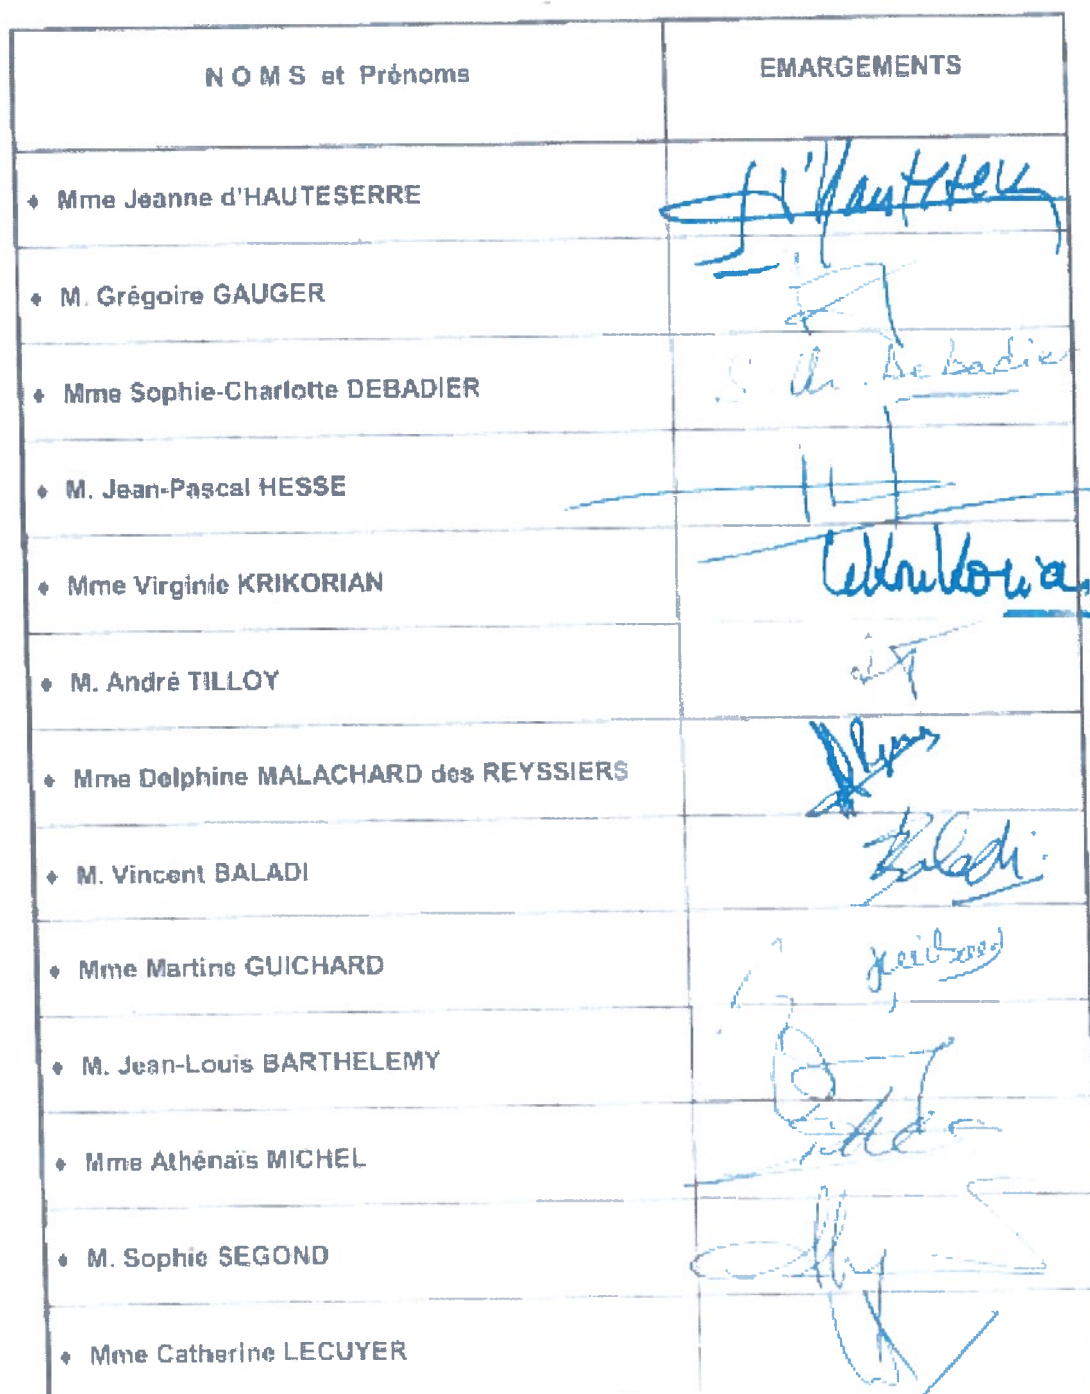 NOMS et Prénoms EMARGEMENTS
♦ Mme Jeanne d'HAUTESERRE
♦ M. Grégoire GAUGER
♦ Mme Sophie-Charlotte DEBADIER S. Ch. Debadier
♦ M. Jean-Pascal HESSE
♦ Mme Virginie KRIKORIAN Krikorian
♦ M. André TILLOY
♦ Mme Delphine MALACHARD des REYSSIERS
♦ M. Vincent BALADI Baladi
♦ Mme Martine GUICHARD
♦ M. Jean-Louis BARTHELEMY
♦ Mme Athénaïs MICHEL
♦ M. Sophie SEGOND
♦ Mme Catherine LECUYER